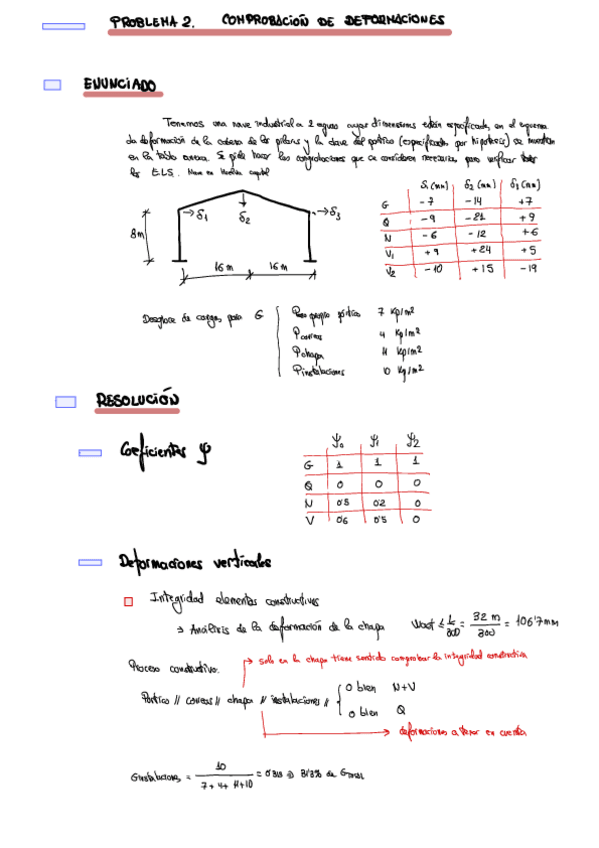 PROBLEMA 2. COMPROBACIÓN DE DEFORMACIONES
ENUNCIADO
Tenemos una nave industrial a 2 aguas cuyas dimensiones están especificadas en el esquema.
La deformación de la cabeza de los pilares y la clave del pórtico (especificadas por hipótesis) se muestran
en la tabla anexa. Se pide hacer las comprobaciones que se consideren necesarias para verificar
los E.L.S.
δ1 (mm) δ2 (mm) δ3 (mm)
G -7 -14 +7
Q -9 -21 +9
N -6 -12 +6
V1 +9 +24 +5
V2 -10 +15 -19
→δ1
δ2
→δ3
8m
16 m 16 m
Desglose de cargas para G
Peso propio pórtico 7 Kp/m²
Pcorreas 4 Kp/m²
Pchapa 11 Kp/m²
Pinstalaciones 10 Kg/m²
RESOLUCIÓN
Coeficientes φ
Ψ0 Ψ1 Ψ2
G 1 1 1
Q 0 0 0
N 0'5 0'2 0
V 0'6 0'5 0
Deformaciones verticales
Integridad elementos constructivos
→ Análisis de la deformación de la chapa
≤ L/300 = 32 m/300 = 106'7 mm
→ solo en la chapa tiene sentido comprobar la integridad constructiva
Proceso constructivo.
Pórtico // correas // chapa // instalaciones //
O bien N+V
O bien Q
→ deformaciones a tener en cuenta
Ginstalaciones = 10/(7+4+11+10) =